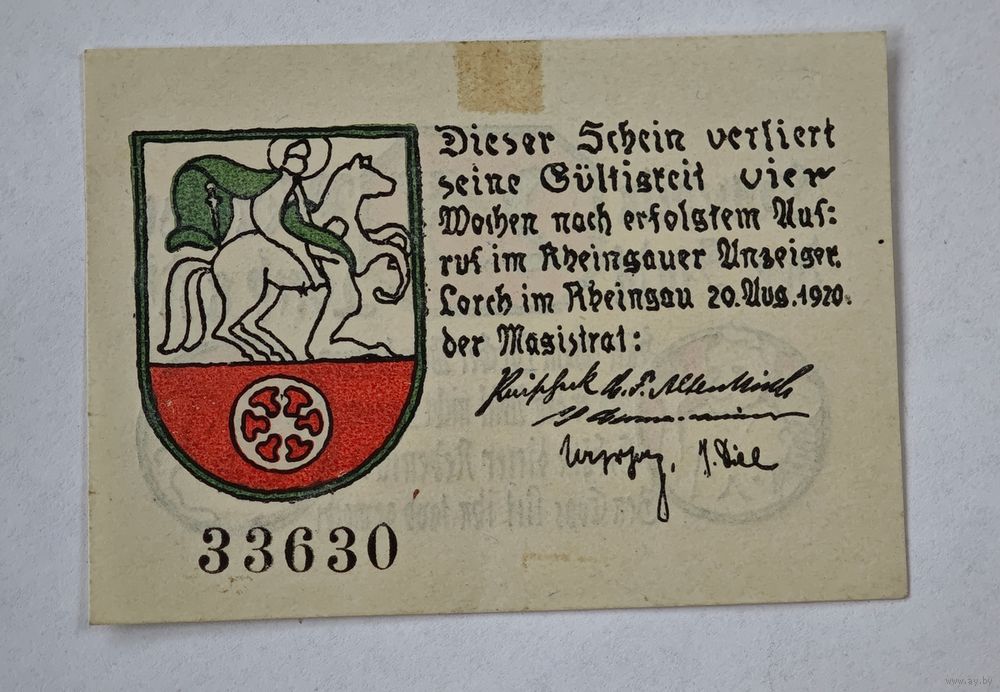 Dieser Schein verliert
seine Gültigkeit vier
Wochen nach erfolgtem Auf:
ruf im Rheingauer Anzeiger.
Lorch im Rheingau 20. Aug. 1920.
der Magistrat:
33630
www.ay.by